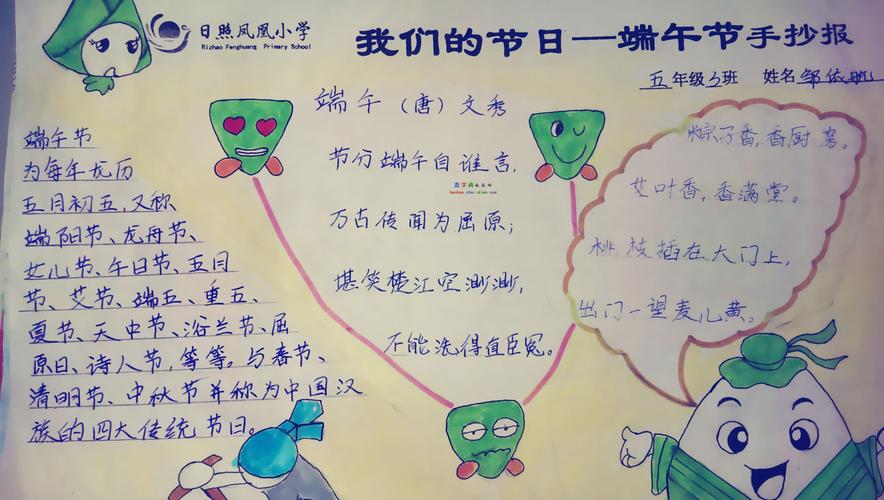 日照凤凰小学
Rizhao Fenghuang Primary School
我们的节日—端午节手抄报
五年级3班 姓名邹依航
端午节
为每年龙历
五月初五,又称
端阳节、龙舟节、
女儿节、午日节、五月
节、艾节、端五、重五、
夏节、天中节、浴兰节、屈
原日、诗人节,等等。与春节、
清明节、中秋节并称为中国汉
族的四大传统节日。
端午(唐)文秀
节分端午自谁言,
万古传闻为屈原;
堪笑楚江空渺渺,
不能洗得直臣冤。
粽子香,香厨房。
艾叶香,香满堂。
桃枝插在大门上,
出门一望麦儿黄。